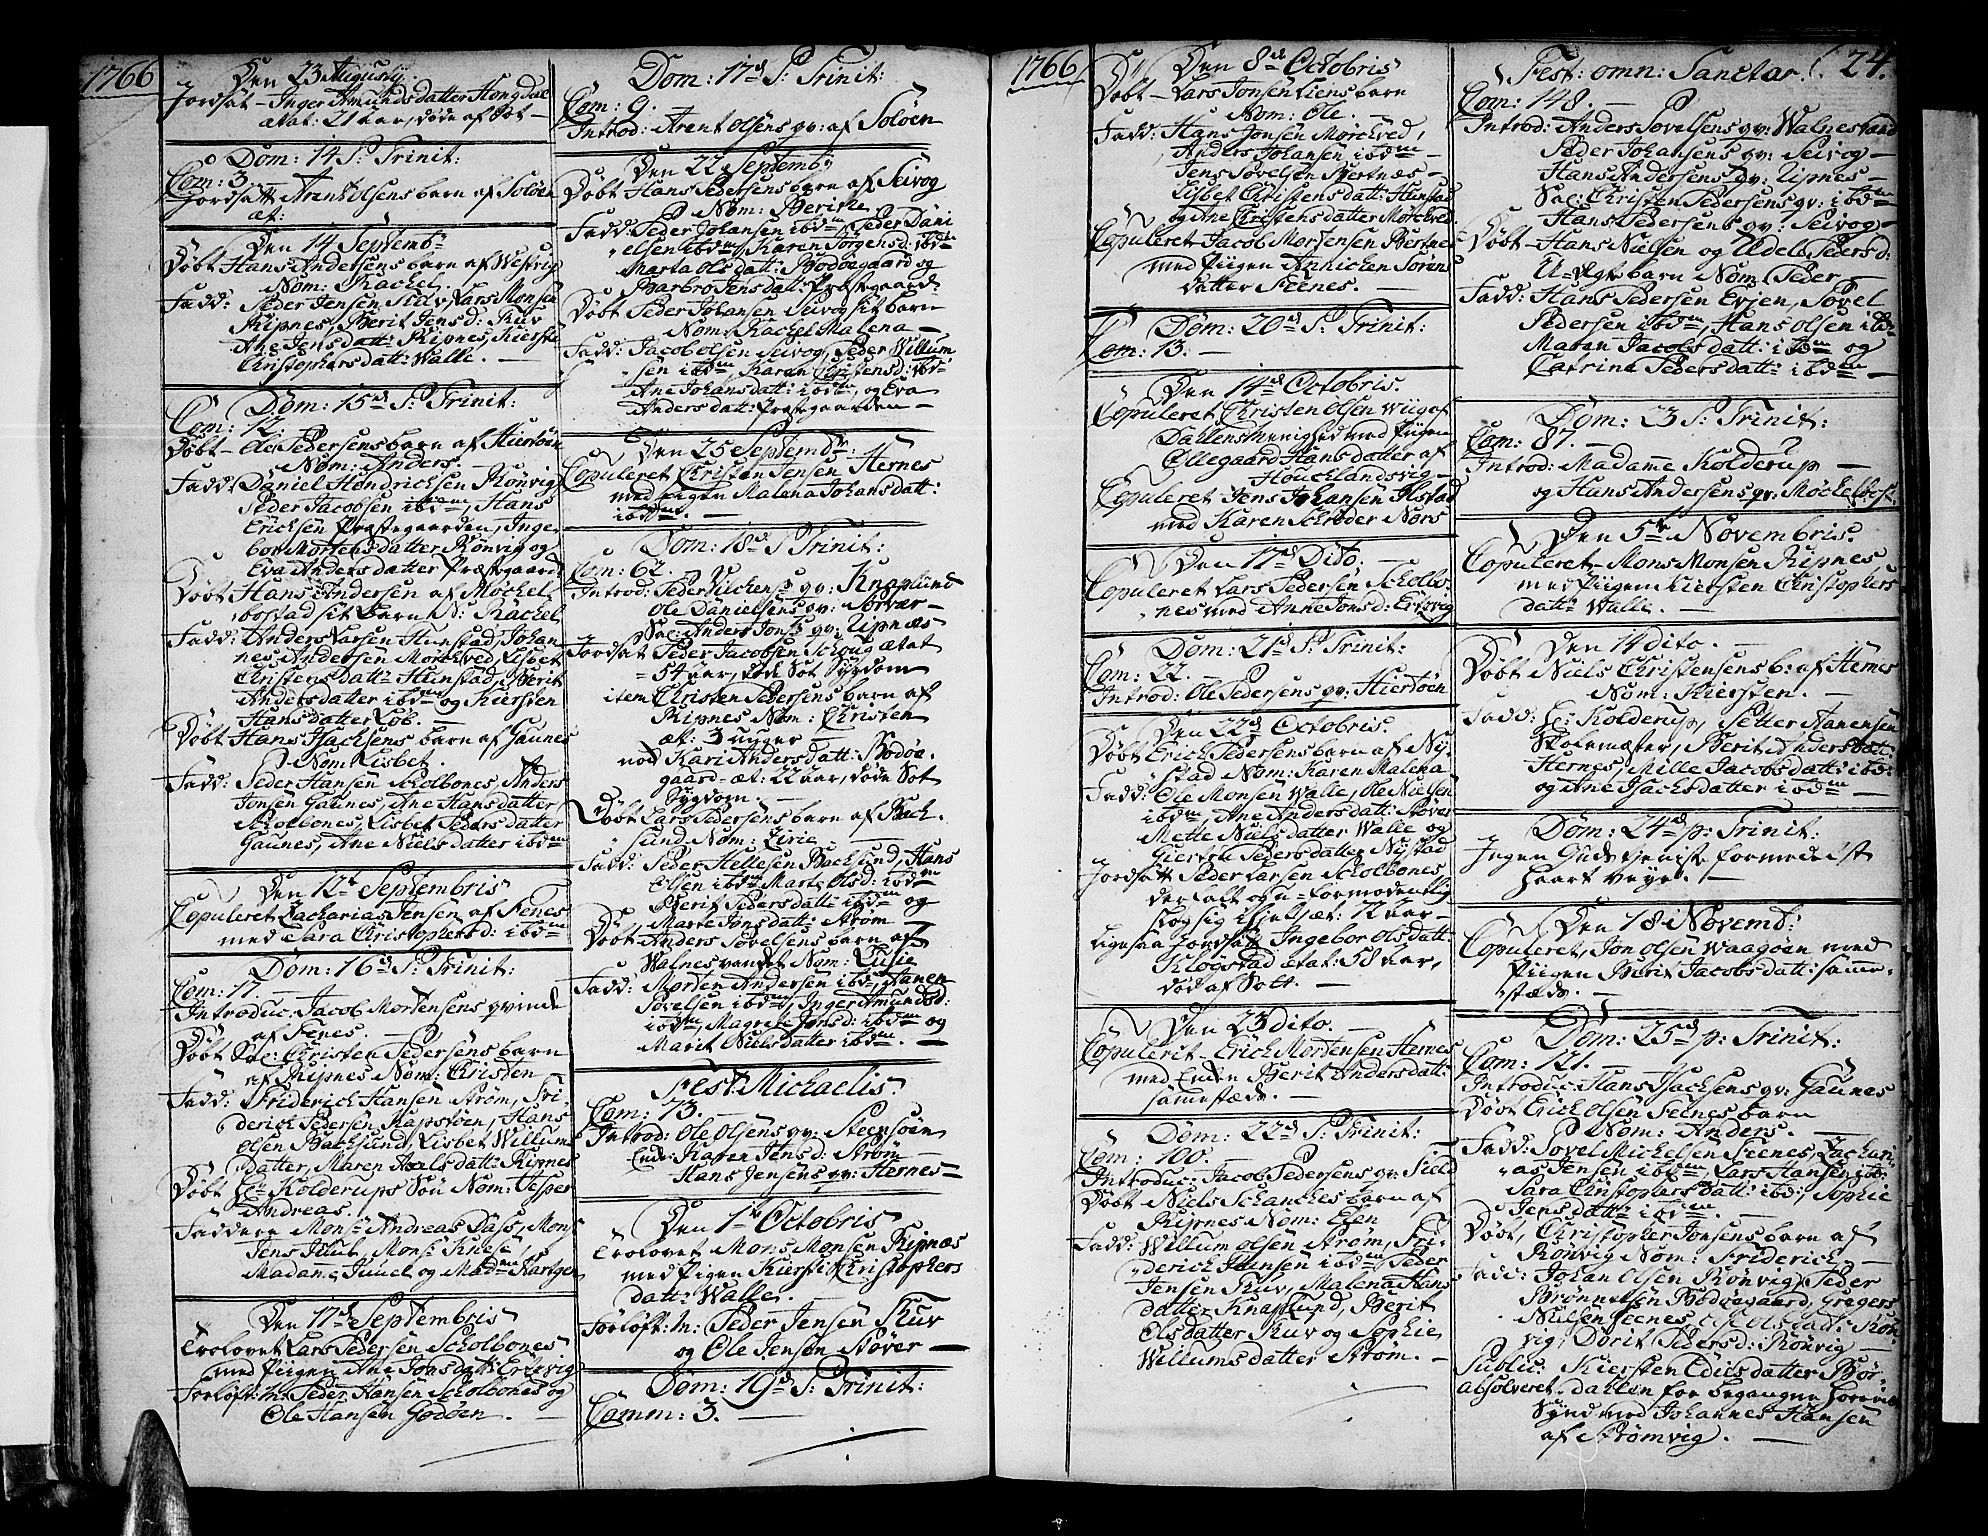 1766
Den 23 Augusti:
Jordsat - Inger Amundsdatter Hongdal
ætat: 21 aar, døde af Sot -
Dom: 14 P: Trinit:
Com: 3 -
Jordsatt Arent Olsens barn af Soløen
æt:
Den 14 Septemb:
Døbt Hans Andersens barn af Westvig
Nom: Rachel.
Fadd: Peder Jensen Kuv, Lars Monsen
Ripnes, Berit Jensd: Kuv
Ane Jensdatt: Ripnes, Kierste
Christophersdatt: Walle. -
Dom: 15de P: Trinit:
Com: 12. -
Døbt - Ole Pedersens barn af Hiertøen
Nom: Anders. -
Fadd: Daniel Hendrichsen Rønvig
Peder Jacobsen ibdm, Hans
Ericksen Præstegaarden, Inge-
bor Mortensdatter Rønvig og
Eva Andersdatter Præstgaard
Døbt Hans Andersen af Møckel-
bostad sit barn N: Rachel
Fadd: Anders Larsen Hunstad, Johan
nes Andersen Mørchved, Lisbet
Christensdatt: Hunstad, Berit
Andersdatter ibdm og Kiersten
Hansdatter Løb. -
Døbt Hans Isachsens barn af Gaunes
Nom: Lisbet.
Fadd: Peder Hansen Scholbones, Anders
Jonsen Gaunes, Ane Hansdatter
Scholbones, Lisbet Pedersdatter
Gaunes, Ane Nielsdatter ibdm
Den 12te Septembris
Copuleret Zacharias Jensen af Fenes
med Sara Christophersd: ibdm
Dom: 16de P: Trinit:
Com: 17 -
Introduc: Jacob Mortensens qvinde
af Fenes. -
Døbt Sac: Christen Pedersens barn
af Ripnes Nom: Christen
Fadd: Friderich Hansen Strøm, Fri-
derich Pedersen Kapstøen, Hans
Olsen Bachsund, Lisbet Willums
datter, Maren Axelsdatt: Ripnes
Døbt Hr Kolderups Søn Nom: Jesper
Andreas.
Faddere Monsr Andreas Dass, Monsr
Jens Juul, Monsr Knese,
Madame Juuel og Madm Hartgen
Den 17de Septembris
Trolovet Lars Pedersen Scholbones
med Piigen Ane Jonsdatt: Erisvig
Forløft: M: Peder Hansen Scholbones og
Ole Hansen Godøen. -
Dom: 17de P: Trinit:
Com: 9. -
Introd: Arent Olsens qv: af Soløen
Den 22 Septemb:
Døbt Hans Pedersens barn af Seivog
Nom: Berithe.
Fadd: Peder Johansen ibdm, Peder Dani
elsen ibdm, Karen Jørgensd: ibdm
Marta Olsdatt: Bodøegaard og
Barbro Jensdatt: Præstegaard
Døbt Peder Johansen Seivog sit barn
Nom: Rachel Malena -
Fadd: Jacob Olsen Seivog, Peder Willum
sen ibdm, Karen Christensd: ibd
Ane Johansdatt: ibdm, og Eva
Andersdatt: Præstegaarden -
Den 25 Septembr:
Copuleret Christen Jensen Hernes
med piigen Malena Johansdatt:
ibdm. -
Dom: 18de P: Trinit:
Com: 62. -
Introd: Peder Wilckens qv: Knaplund
Ole Danielsens qv: Sørvær -
Sac: Anders Jonsens qv: Lipnæs
Jordsat Peder Jacobsen Schoug ætat
54 aar, døde Sot Sygdom
item Christen Pedersens barn af
Ripnes Nom: Christen
æt: 3 uger
nod Kari Andersdatt: Bodøe-
gaard - æt: 22 aar, døde Sot
Sygdom. -
Døbt Lars Pedersens barn af Bach-
sund Nom: Zirie -
Fadd: Peder Hellesen Bachsund, Hans
Elsen ibdm Marte Olsd: ibdm
Berit Pedersdatt: ibdm og
Marte Jonsdatt: Strøm -
Døbt Anders Sovelsens barn af
Walnesvandet Nom: Cicilie
Fadd: Morten Andersen ibdm, Hanen
Sovelsen ibdm, Inger Amundsd:
ibdm, Magrete Jonsd: ibdm og
Marit Nielsdatter ibdm. -
Fest: Michaelis.
Com: 73. -
Introd: Ole Olsens qv: Steensøen
Enke Karen Jensd: Strøm -
Hans Jensens qv: Hernes -
Den 1te Octobris
Trolovet Mons Monsen Ripnæs
med Pigen Kiersti Christophers
datt: Walle. -
Forløft: M: Peder Jensen Kuv
og Ole Jensen Støver -
Dom: 19de P: Trinit:
Comm: 3. -
1766
Den 8de Octobris
Døbt - Lars Jonsen Liens barn
Nom: Ole. -
Fadd: Hans Jensen Mørchved,
Anders Johansen ibdm -
Jens Sovelsen Bertnæs -
Lisbet Christensdatt: Hunstad
og Ane Christensdatter Mørchved
Copuleret Jacob Mortensen Bertnes
med Piigen Annichen Sørens
datter Seenes. -
Dom: 20de P: Trinit:
Com: 13. -
Den 14de Octobris.
Copuleret Christen Olsen Wiig af
Dahlens Menighed med Piigen
Ollegaard Hansdatter af
Houcklandsvig -
Copuleret Jens Johansen Ilstad
med Karen Schrøder Nørs
Den 17de Dito. -
Copuleret Lars Pedersen Scholbo-
nes med Anne Jonsd: Erisvig
Dom: 21de P: Trinit:
Com: 22. -
Introd: Ole Pedersens qv: Hiertøen
Den 22de Octobris.
Døbt Erich Pedersens barn af Ny-
stad Nom: Karen Malena
Fadd: Ole Monsen Walle, Ole Nielsen
ibdm, Ane Andersdatt: Støver
Mette Nielsdatter Walle og
Giertru Pedersdatter Nystad
Jordsatt Peder Larsen Scholbones
der faldt og u-formodentlig
slog sig ihiel, æt: 72 aar -
ligesaa Jordsat Ingebor Olsdatt:
Klogstad etat: 58 aar,
død af Sott. -
Den 23 Dito. -
Copuleret - Erich Mortensen Hernes
med Enke Berit Andersdatt:
sammestæds. -
Dom: 22de P: Trinit:
Com: 100. -
Introduc: Jacob Pedersens qv: Sield
Døbt Niels Schanches barn af
Ripnes Nom: Elen
Fadd: Willum Olsen Strøm, Fri-
derich Jensen ibdm, Peder
Jensen Kuv, Malena Hans
datter Knaplund, Berit
Olsdatter Kuv og Sophie
Willumsdatter Strøm. -
24.
Fest: omn: Sanctor.
Com: 148. -
Introd: Anders Sovelsens qv: Walnesvand
Peder Johansens qv: Seivog -
Hans Andersens qv: Lipnes -
Sac: Christen Pedersens qv: ibdm
Hans Pedersens qv: Seivog -
Døbt - Hans Nielsen og Udele Pedersd:
U-Ægt barn Nom: Peder -
Fadd: Hans Pedersen Evjen, Sovel
Pedersen ibdm, Hans Olsen ibdm
Maren Jacobsdatt: ibdm og
Catrina Pedersdatt: ibdm -
Dom: 23 P: Trinit:
Com: 87. -
Introd: Madame Kolderup -
og Hans Andersens qv: Møckelbost.
Den 5te Novembris.
Copuleret - Mons Monsen Ripnes,
med Piigen Kiersten Christophers
datt: Walle. -
Den 14 dito. -
Døbt Niels Christensens b: af Hernes
Nom: Kiersten. -
Fadd: Hr: Kolderup, Petter Aanensen
Skolemester, Berit Andersdatt:
Hernes, Mille Jacobsdatt: ibd:
og Ane Isachsdatter ibdm -
Dom: 24de p: Trinit:
Ingen Gudstjeniste formedelst
haart veyr. -
Den 18 Novemb:
Copuleret, Jon Olsen Waagøen med
Piigen Berit Jacobsdatt: samme-
stæds. -
Dom: 25de p: Trinit:
Com: 121. -
Introduc: Hans Isachsens qv: Gaunes
Døbt Erich Olsen Seenes barn
Nom: Anders. -
Fadd: Sovel Michelsen Seenes, Zachari-
as Jensen ibdm, Lars Hansen ibd:
Sara Christophersdatt: ibd: Sophie
Jensdatt: ibdm. -
Døbt, Christopher Jonsens barn af
Rønvig Nom: Friderich. -
Fadd: Johan Olsen Rønvig, Peder
Brønnelsen Bodøegaard, Gregers
Nielsen Seenes, Else Olsdatt: Røn-
vig, Dorit Pedersd: Rønvig -
Public: Kiersten Edisdatter Bør-
absolveret. dahlen for begangne Horerie
Synd med Johannes Hansen
af Strømvig. -